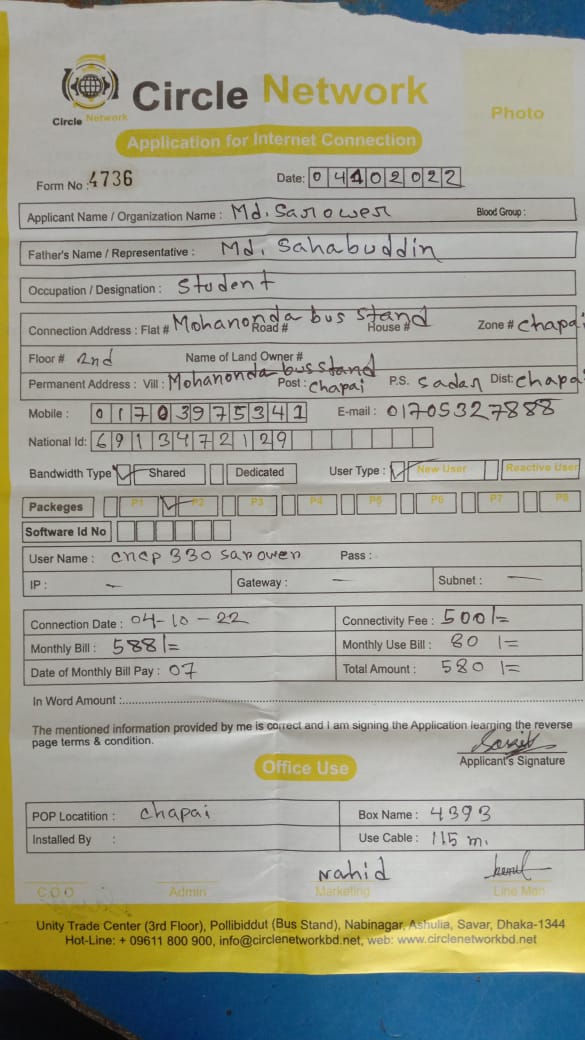 Circle Network
Circle Network
Photo
Application for Internet Connection
Form No : 4736
Date: 04102022
Applicant Name / Organization Name : Md. Sarower Blood Group :
Father's Name / Representative : Md. Sahabuddin
Occupation / Designation : Student
Connection Address : Flat # Mohanonda bus stand Road # House # Zone # chapai
Floor # 2nd Name of Land Owner #
Permanent Address : Vill : Mohanonda bus stand Post : chapai P.S. sadar Dist: chapai
Mobile : 01703975341 E-mail : 01705327888
National Id: 6913472129
Bandwidth Type ✓ Shared Dedicated User Type : ✓ New User Reactive User
Packeges P1 ✓ P2 P3 P4 P5 P6 P7 P8
Software Id No
User Name : cncp 330 sarower Pass :
IP : – Gateway : – Subnet : –
Connection Date : 04-10-22 Connectivity Fee : 500/=
Monthly Bill : 588/= Monthly Use Bill : 80/=
Date of Monthly Bill Pay : 07 Total Amount : 580/=
In Word Amount :
The mentioned information provided by me is correct and I am signing the Application learning the reverse
page terms & condition.
Applicant's Signature
Office Use
POP Locatition : chapai Box Name : 4393
Installed By : Use Cable : 115 m.
Nahid
C.O.O Admin Marketing Line Man
Unity Trade Center (3rd Floor), Pollibiddut (Bus Stand), Nabinagar, Ashulia, Savar, Dhaka-1344
Hot-Line: + 09611 800 900, info@circlenetworkbd.net, web: www.circlenetworkbd.net